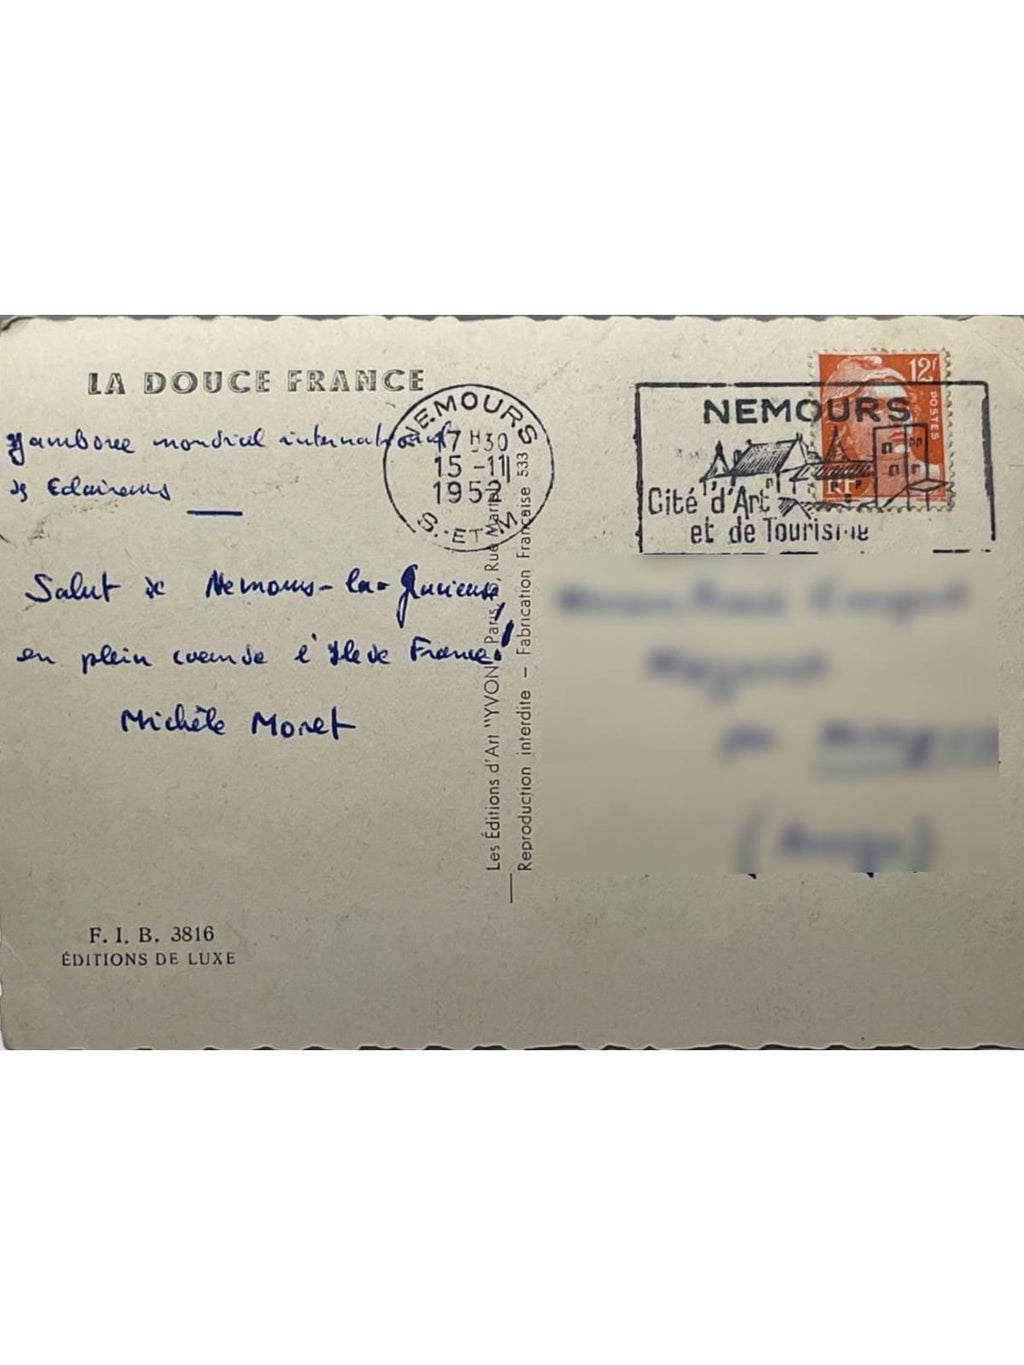 LA DOUCE FRANCE
Jamboree mondial international
de Eclaireurs
Salut de Nemours-la-Gracieuse,
en plein coeur de l'Ile de France!
Michèle Moret
F. I. B. 3816
ÉDITIONS DE LUXE
NEMOURS
17 H 30
15 -11
1952
S.-ET-M.
Les Éditions d'Art "YVON" Paris, Rue
Reproduction interdite – Fabrication Française 533
NEMOURS
Cité d'Art
et de Tourisme
12F
POSTES
RF